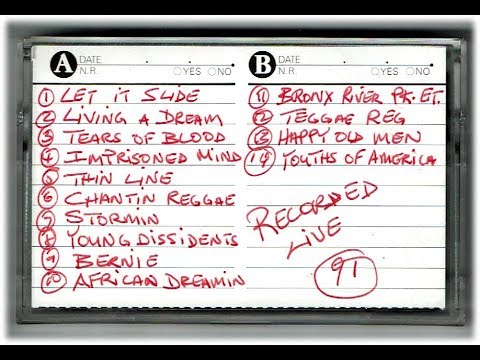 A DATE
N.R. YES NO
1 LET IT SLIDE
2 LIVING A DREAM
3 TEARS OF BLOOD
4 IMPRISONED MIND
5 THIN LINE
6 CHANTIN REGGAE
7 STORMIN
8 YOUNG DISSIDENTS
9 BERNIE
10 AFRICAN DREAMIN
B DATE
N.R. YES NO
11 BRONX RIVER PK. ET.
12 TEGGAE REG
13 HAPPY OLD MEN
14 YOUTHS OF AMERICA
RECORDED
LIVE
91